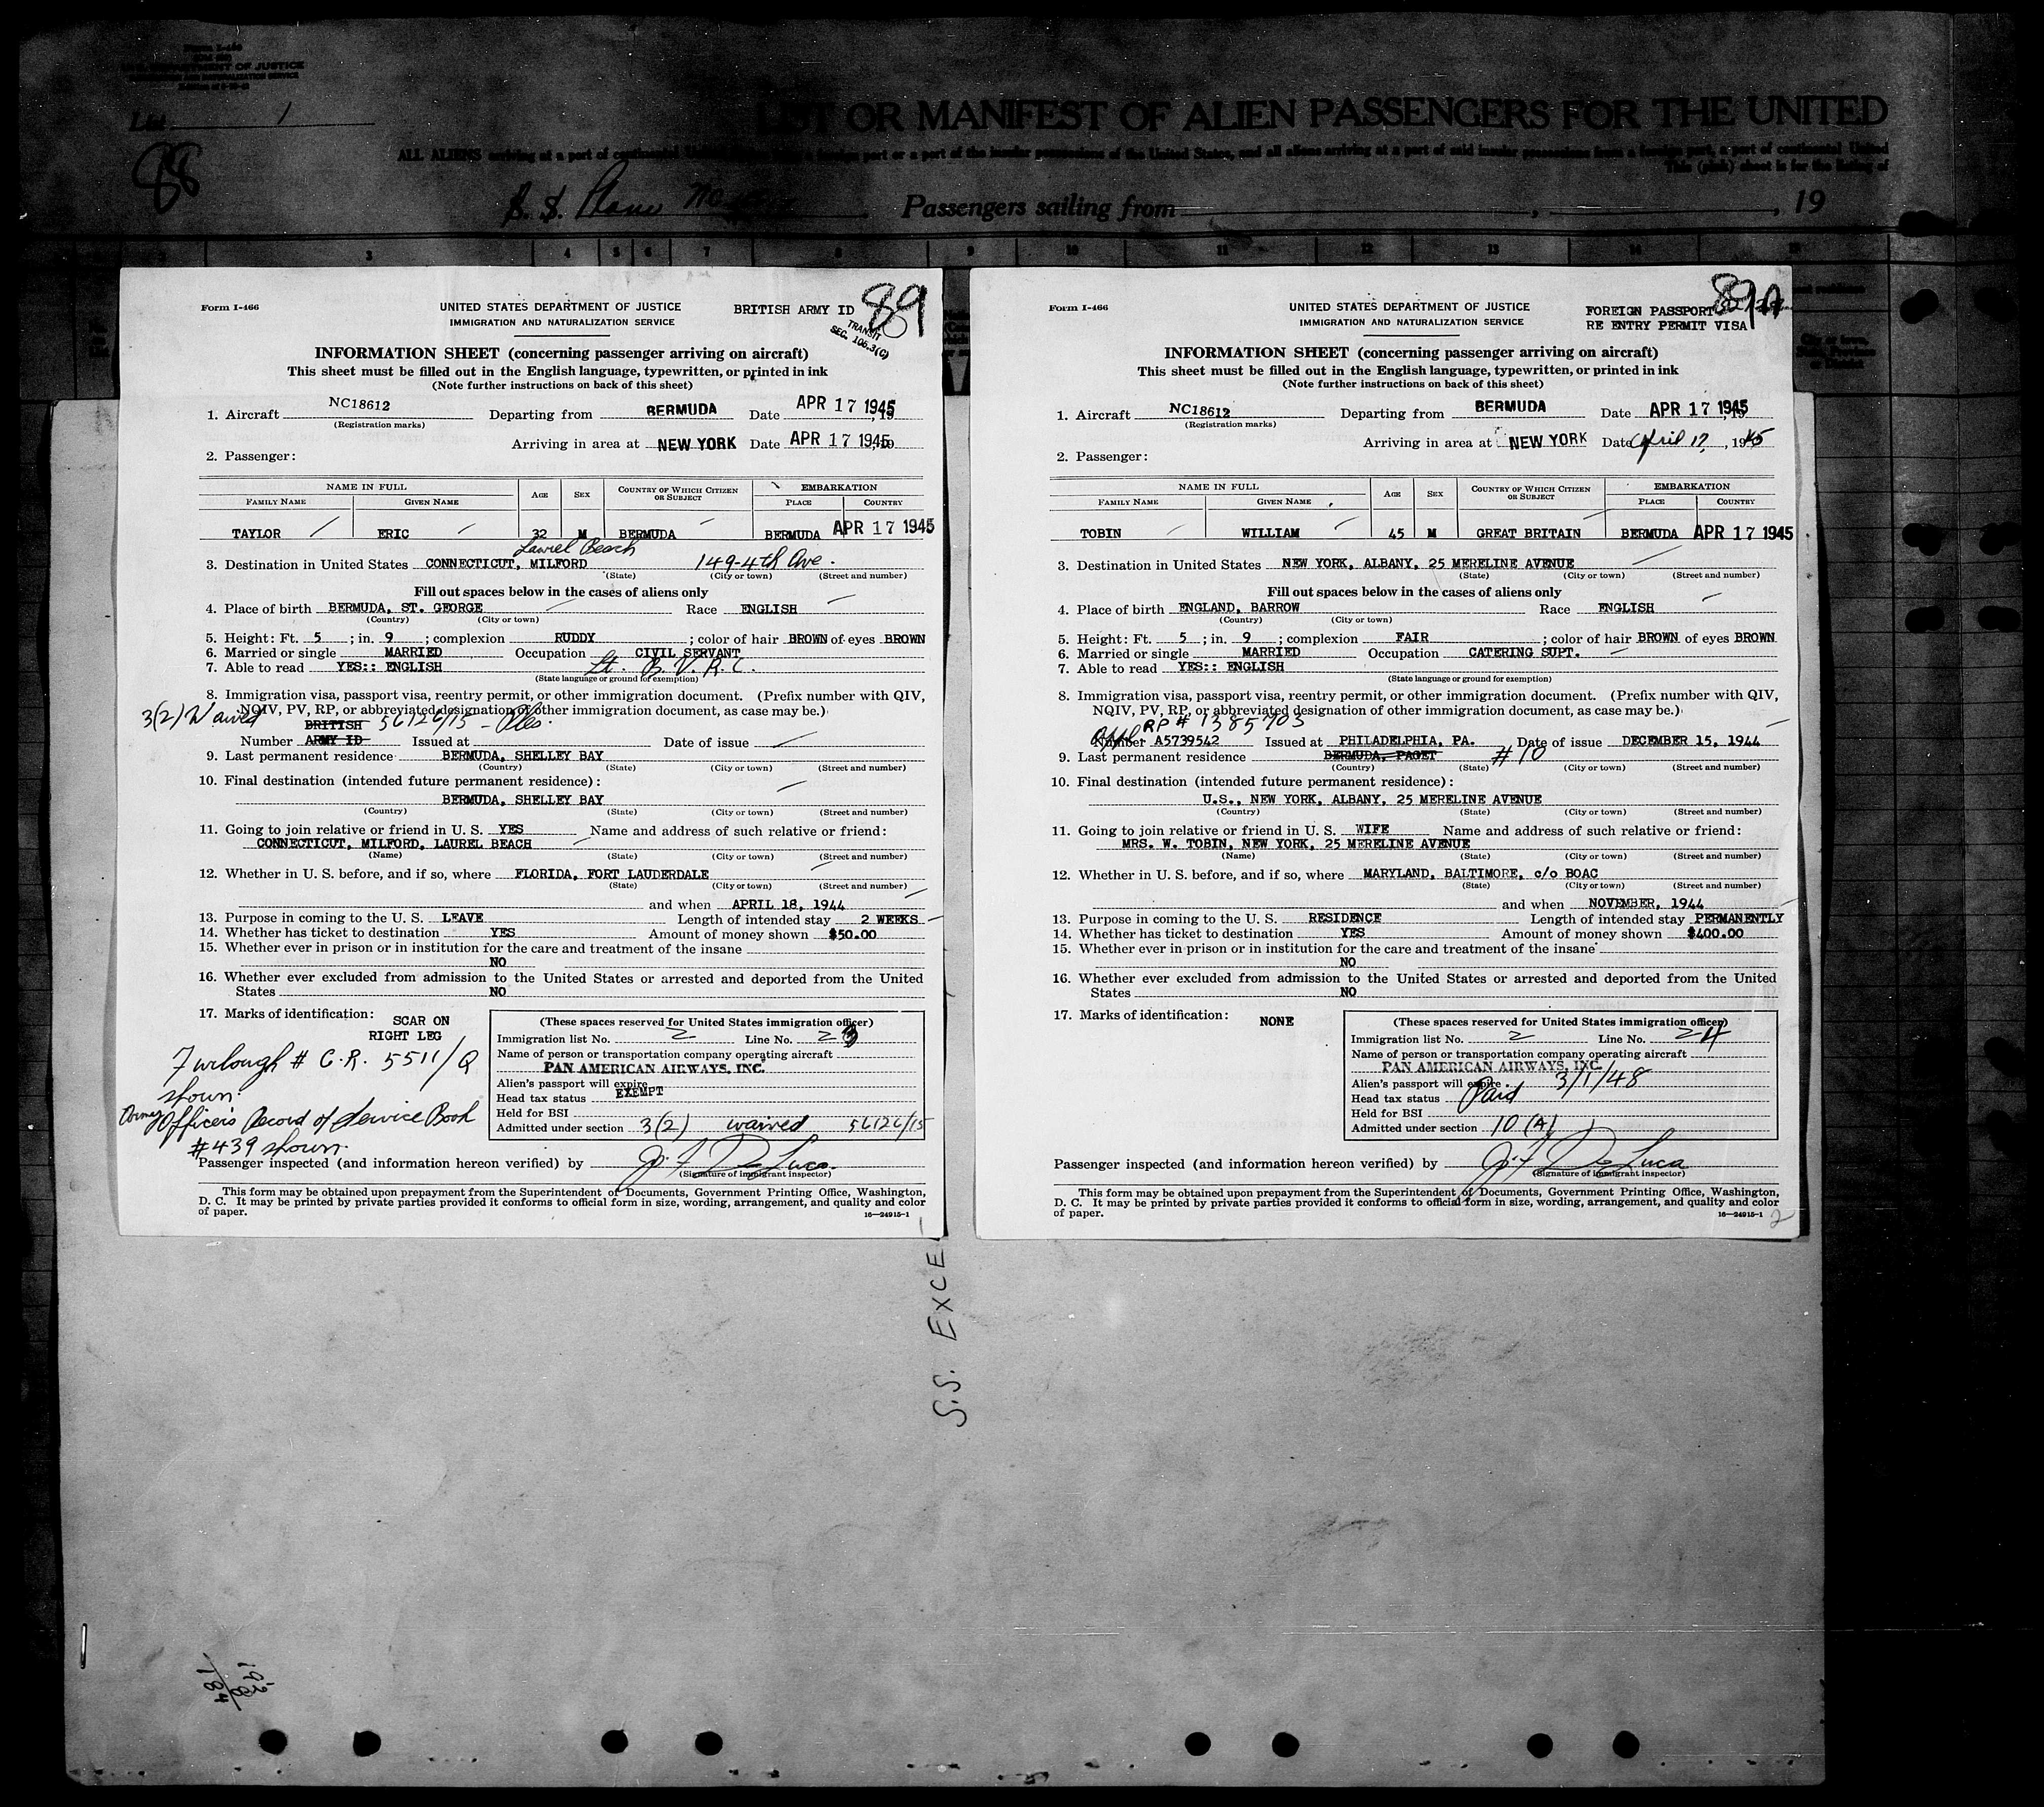 DEPARTMENT OF JUSTICE
List 1
88
LIST OR MANIFEST OF ALIEN PASSENGERS FOR THE UNITED
This (pink) sheet is for the listing of
Passengers sailing from , 19
3 4 5 6 7 8 9 10 11 12 13 14 15
Form I-466
UNITED STATES DEPARTMENT OF JUSTICE
IMMIGRATION AND NATURALIZATION SERVICE
BRITISH ARMY ID
89
TRANSIT
SEC. 106.3(G)
INFORMATION SHEET (concerning passenger arriving on aircraft)
This sheet must be filled out in the English language, typewritten, or printed in ink
(Note further instructions on back of this sheet)
1. Aircraft NC18612 Departing from BERMUDA Date APR 17 1945
(Registration marks)
Arriving in area at NEW YORK Date APR 17 1945
2. Passenger:
NAME IN FULL AGE SEX COUNTRY OF WHICH CITIZEN OR SUBJECT EMBARKATION
FAMILY NAME GIVEN NAME PLACE COUNTRY
TAYLOR ERIC 32 M BERMUDA BERMUDA APR 17 1945
Laurel Beach
3. Destination in United States CONNECTICUT, MILFORD 149-4th Ave.
(State) (City or town) (Street and number)
Fill out spaces below in the cases of aliens only
4. Place of birth BERMUDA, ST. GEORGE Race ENGLISH
(Country) (City or town)
5. Height: Ft. 5 ; in. 9 ; complexion RUDDY ; color of hair BROWN of eyes BROWN
6. Married or single MARRIED Occupation CIVIL SERVANT
7. Able to read YES:: ENGLISH Lt. B. V. R. C.
(State language or ground for exemption)
8. Immigration visa, passport visa, reentry permit, or other immigration document. (Prefix number with QIV,
NQIV, PV, RP, or abbreviated designation of other immigration document, as case may be.)
3(2) Waived BRITISH 56126/15
Number ARMY ID Issued at Date of issue
9. Last permanent residence BERMUDA, SHELLEY BAY
(Country) (State) (City or town) (Street and number)
10. Final destination (intended future permanent residence):
BERMUDA, SHELLEY BAY
(Country) (State) (City or town) (Street and number)
11. Going to join relative or friend in U. S. YES Name and address of such relative or friend:
CONNECTICUT, MILFORD, LAUREL BEACH
(Name) (State) (City or town) (Street and number)
12. Whether in U. S. before, and if so, where FLORIDA, FORT LAUDERDALE
(State) (City or town) (Street and number)
and when APRIL 18, 1944
13. Purpose in coming to the U. S. LEAVE Length of intended stay 2 WEEKS
14. Whether has ticket to destination YES Amount of money shown $50.00
15. Whether ever in prison or in institution for the care and treatment of the insane
NO
16. Whether ever excluded from admission to the United States or arrested and deported from the United
States NO
17. Marks of identification: SCAR ON
RIGHT LEG
Furlough # C.R. 5511/Q
shown.
Army Officer's Record of Service Book
#439 shown.
(These spaces reserved for United States immigration officer)
Immigration list No. 2 Line No. 23
Name of person or transportation company operating aircraft
PAN AMERICAN AIRWAYS, INC.
Alien's passport will expire
Head tax status EXEMPT
Held for BSI
Admitted under section 3(2) waived 56126/15
Passenger inspected (and information hereon verified) by J. F. De Luca
(Signature of immigrant inspector)
This form may be obtained upon prepayment from the Superintendent of Documents, Government Printing Office, Washington,
D. C. It may be printed by private parties provided it conforms to official form in size, wording, arrangement, and quality and color
of paper.
16—24915-1
Form I-466
UNITED STATES DEPARTMENT OF JUSTICE
IMMIGRATION AND NATURALIZATION SERVICE
FOREIGN PASSPORT
RE ENTRY PERMIT VISA
89A
INFORMATION SHEET (concerning passenger arriving on aircraft)
This sheet must be filled out in the English language, typewritten, or printed in ink
(Note further instructions on back of this sheet)
1. Aircraft NC18612 Departing from BERMUDA Date APR 17 1945
(Registration marks)
Arriving in area at NEW YORK Date April 17, 1945
2. Passenger:
NAME IN FULL AGE SEX COUNTRY OF WHICH CITIZEN OR SUBJECT EMBARKATION
FAMILY NAME GIVEN NAME PLACE COUNTRY
TOBIN WILLIAM 45 M GREAT BRITAIN BERMUDA APR 17 1945
3. Destination in United States NEW YORK, ALBANY, 25 MERELINE AVENUE
(State) (City or town) (Street and number)
Fill out spaces below in the cases of aliens only
4. Place of birth ENGLAND, BARROW Race ENGLISH
(Country) (City or town)
5. Height: Ft. 5 ; in. 9 ; complexion FAIR ; color of hair BROWN of eyes BROWN
6. Married or single MARRIED Occupation CATERING SUPT.
7. Able to read YES:: ENGLISH
(State language or ground for exemption)
8. Immigration visa, passport visa, reentry permit, or other immigration document. (Prefix number with QIV,
NQIV, PV, RP, or abbreviated designation of other immigration document, as case may be.)
RP # 1385703
Number A5739542 Issued at PHILADELPHIA, PA. Date of issue DECEMBER 15, 1944
9. Last permanent residence BERMUDA, PAGET #10
(Country) (State) (City or town) (Street and number)
10. Final destination (intended future permanent residence):
U.S., NEW YORK, ALBANY, 25 MERELINE AVENUE
(Country) (State) (City or town) (Street and number)
11. Going to join relative or friend in U. S. WIFE Name and address of such relative or friend:
MRS. W. TOBIN, NEW YORK, 25 MERELINE AVENUE
(Name) (State) (City or town) (Street and number)
12. Whether in U. S. before, and if so, where MARYLAND, BALTIMORE, c/o BOAC
(State) (City or town) (Street and number)
and when NOVEMBER, 1944
13. Purpose in coming to the U. S. RESIDENCE Length of intended stay PERMANENTLY
14. Whether has ticket to destination YES Amount of money shown $400.00
15. Whether ever in prison or in institution for the care and treatment of the insane
NO
16. Whether ever excluded from admission to the United States or arrested and deported from the United
States NO
17. Marks of identification: NONE
(These spaces reserved for United States immigration officer)
Immigration list No. 2 Line No. 24
Name of person or transportation company operating aircraft
PAN AMERICAN AIRWAYS, INC.
Alien's passport will expire 3/1/48
Head tax status Paid
Held for BSI
Admitted under section 10 (A)
Passenger inspected (and information hereon verified) by J. F. De Luca
(Signature of immigrant inspector)
This form may be obtained upon prepayment from the Superintendent of Documents, Government Printing Office, Washington,
D. C. It may be printed by private parties provided it conforms to official form in size, wording, arrangement, and quality and color
of paper.
16—24915-1
2
S.S. EXCE